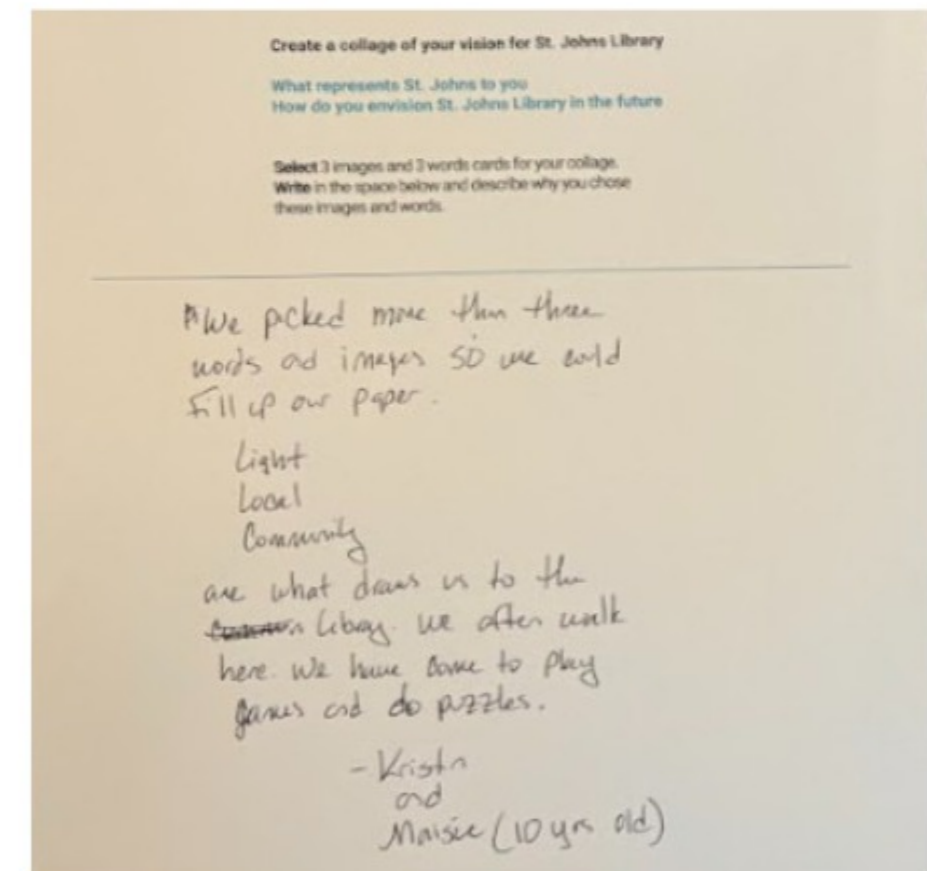 Create a collage of your vision for St. Johns Library
What represents St. Johns to you
How do you envision St. Johns Library in the future
Select 3 images and 3 words cards for your collage.
Write in the space below and describe why you chose
these images and words.
*We picked more than three
words and images so we could
fill up our paper.
Light
Local
Community
are what draws us to the
library. We often walk
here. We have come to play
games and do puzzles.
- Kristn
and
Maisie (10 yrs old)